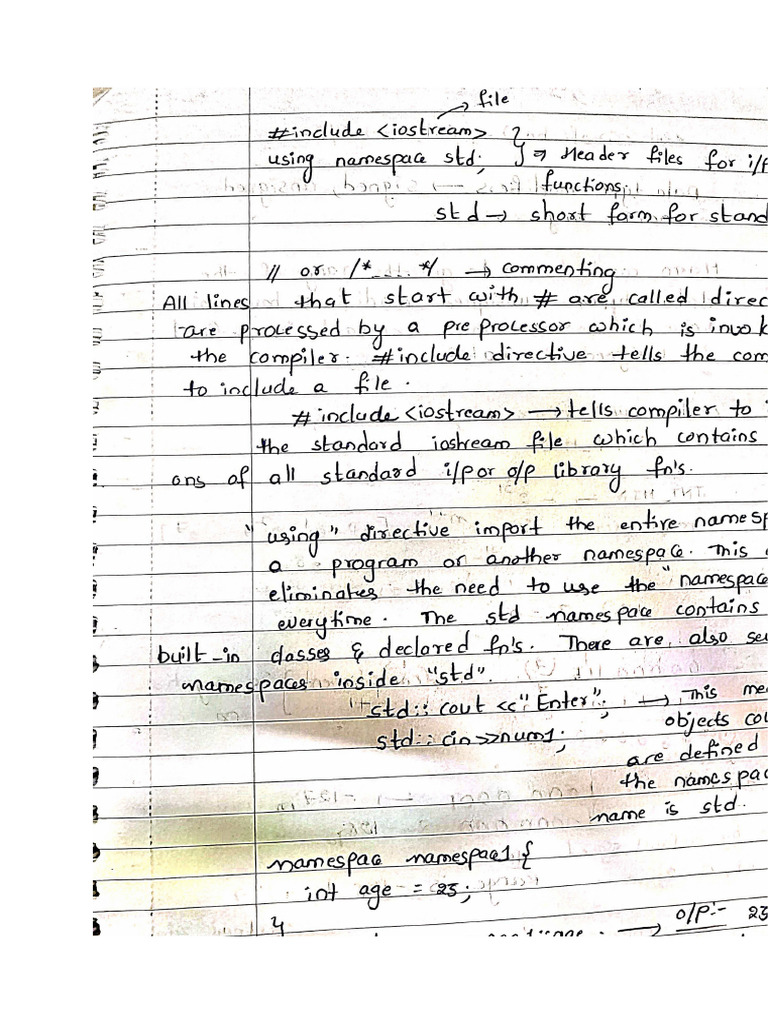 file
#include <iostream> }
using namespace std; } ⇒ Header files for i/p
functions.
std → short form for stand
// or /* .... */ → commenting
All lines that start with # are called direc
are processed by a preprocessor which is invok
the compiler. #include directive tells the com
to include a file.
#include <iostream> → tells compiler to i
the standard iostream file which contains
ons of all standard i/p or o/p library fn's.
"using" directive import the entire namesp
a program or another namespace. This
eliminates the need to use the "namespace
everytime. The std namespace contains
built-in classes & declared fn's. There are also se
namespaces inside "std".
std :: cout << "Enter"; → This me
std :: cin>>num1; objects cou
are defined
the namespac
name is std.
namespace namespace1 {
int age = 25;
} o/p:- 25